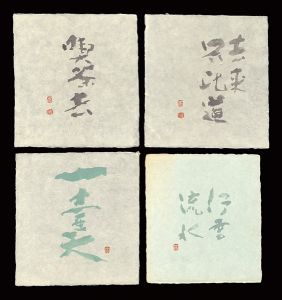 喫茶去
去来
只此道
一壷天
行雲
流水